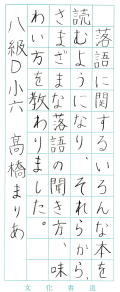 落語に関するいろんな本を
読むようになり、それらから、
さまざまな落語の聞き方、味
わい方を教わりました。
八級D小六 高橋まりあ
文化書道